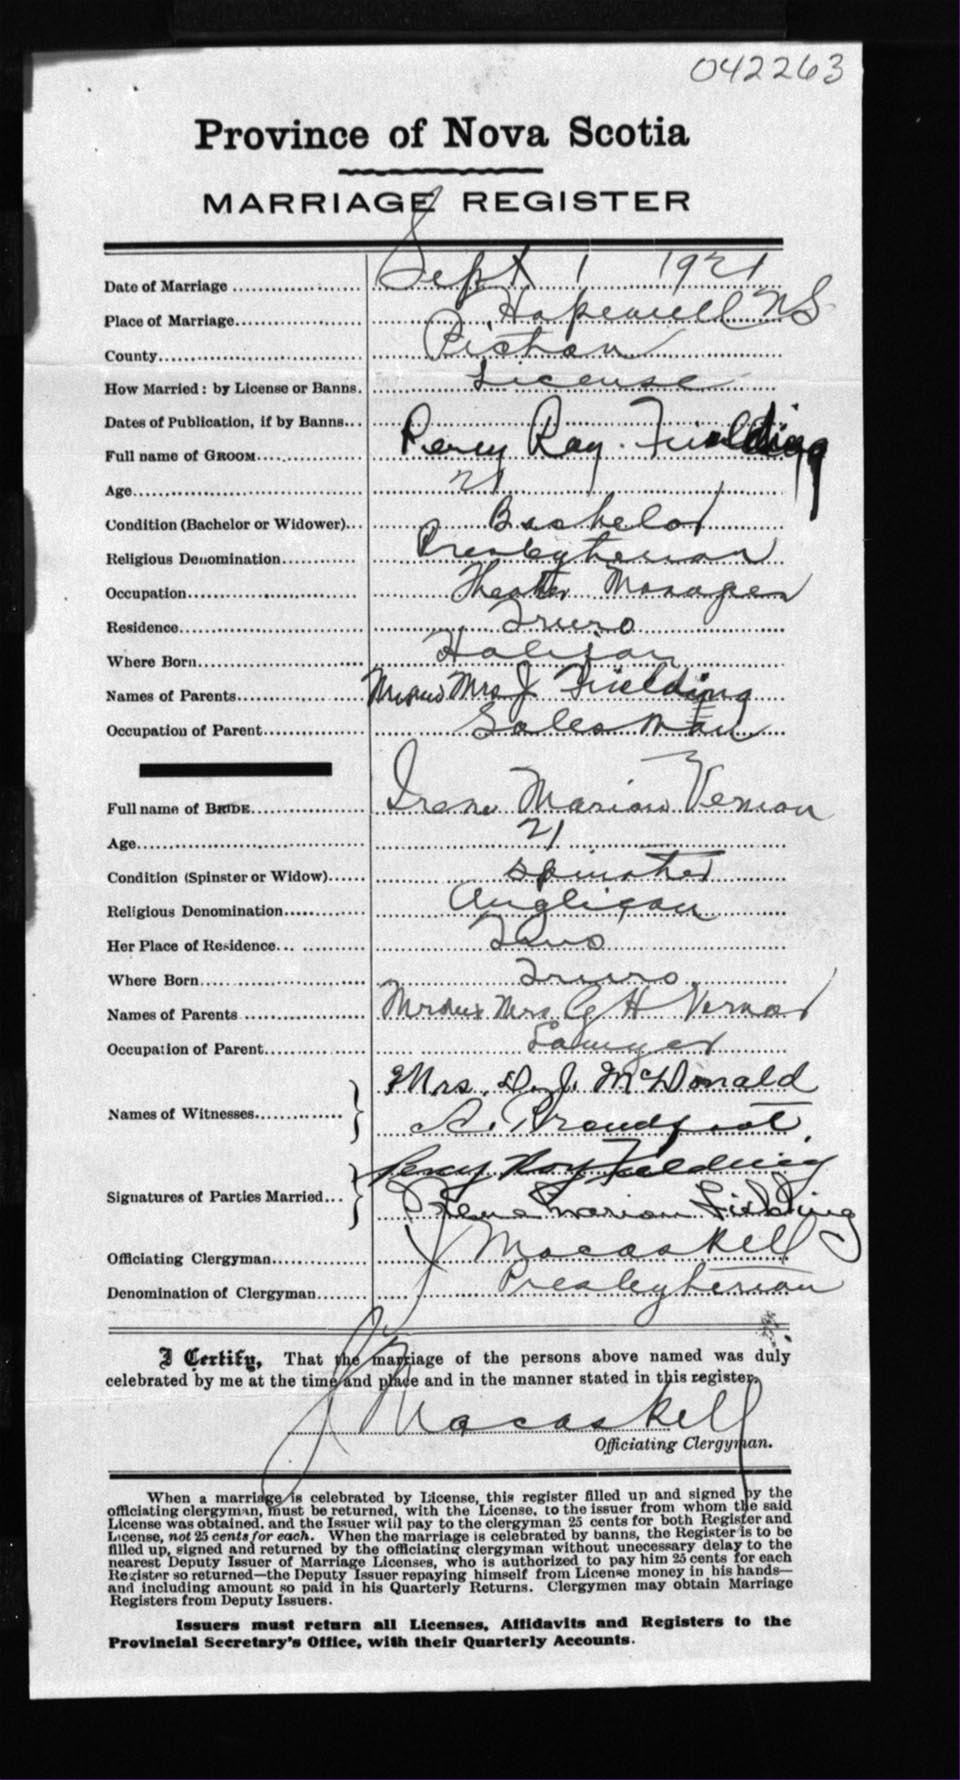 042263
Province of Nova Scotia
MARRIAGE REGISTER
Date of Marriage Sept 1 1921
Place of Marriage Hopewell NS
County Pictou
How Married: by License or Banns. License
Dates of Publication, if by Banns
Full name of GROOM Percy Ray Fielding
Age 21
Condition (Bachelor or Widower) Bachelor
Religious Denomination Presbyterian
Occupation Theatre Manager
Residence Truro
Where Born Halifax
Names of Parents Mr and Mrs J Fielding
Occupation of Parent Salesman
Full name of BRIDE Irene Marion Vernon
Age 21
Condition (Spinster or Widow) Spinster
Religious Denomination Anglican
Her Place of Residence Truro
Where Born Truro
Names of Parents Mr and Mrs G H Vernon
Occupation of Parent Lawyer
Names of Witnesses Mrs. D. J. McDonald
A.
Signatures of Parties Married Percy Roy Fielding
Irene Marion Fielding
Officiating Clergyman J Macaskell
Denomination of Clergyman Presbyterian
I Certify, That the marriage of the persons above named was duly
celebrated by me at the time and place and in the manner stated in this register.
J Macaskell
Officiating Clergyman.
When a marriage is celebrated by License, this register filled up and signed by the
officiating clergyman, must be returned, with the License, to the issuer from whom the said
License was obtained, and the Issuer will pay to the clergyman 25 cents for both Register and
License, not 25 cents for each. When the marriage is celebrated by banns, the Register is to be
filled up, signed and returned by the officiating clergyman without unnecessary delay to the
nearest Deputy Issuer of Marriage Licenses, who is authorized to pay him 25 cents for each
Register so returned—the Deputy Issuer repaying himself from License money in his hands—
and including amount so paid in his Quarterly Returns. Clergymen may obtain Marriage
Registers from Deputy Issuers.
Issuers must return all Licenses, Affidavits and Registers to the
Provincial Secretary's Office, with their Quarterly Accounts.